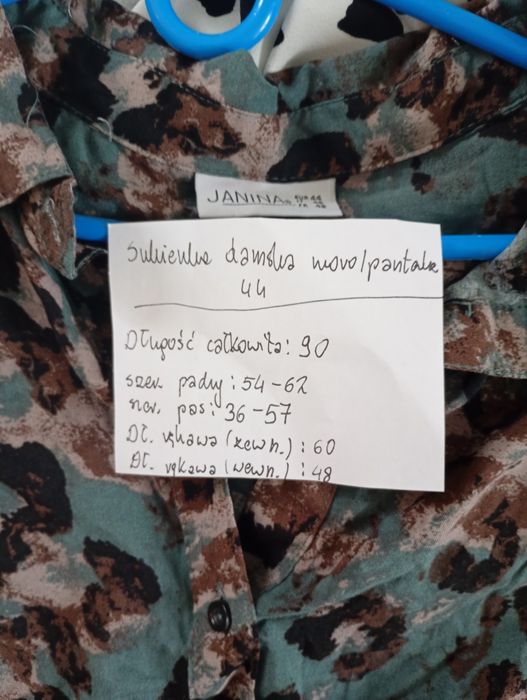 JANINA EUR 44
Sukienka damska moro/pantera
44
Długość całkowita: 90
szer. pachy: 54-62
szer. pas: 36-57
Dł. rękawa (zewn.): 60
Dł. rękawa (wewn.): 48